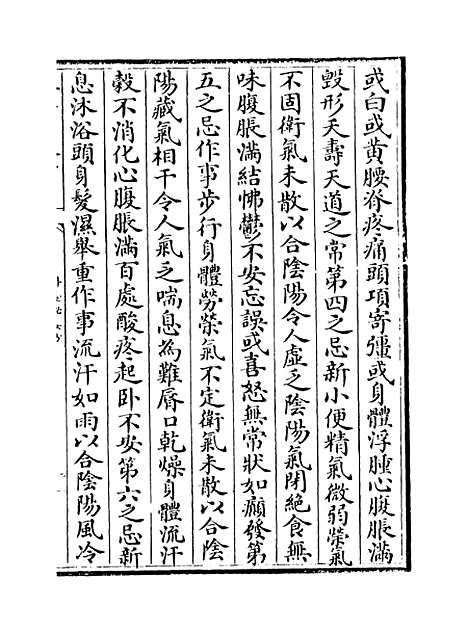 或白或黄腰脊疼痛頭項寄彊或身體浮腫心腹脹滿
毀形夭壽天道之常第四之忌新小便精氣微弱榮氣
不固衛氣未散以合陰陽令人虛乏陰陽氣閉絶食無
味腹脹滿結怫鬱不安忘誤或喜怒無常狀如癲發第
五之忌作事步行身體勞榮氣不定衛氣未散以合陰
陽藏氣相干令人氣乏喘息為難脣口乾燥身體流汗
榖不消化心腹脹滿百處酸疼起卧不安第六之忌新
息沐浴頭身髮濕舉重作事流汗如雨以合陰陽風冷